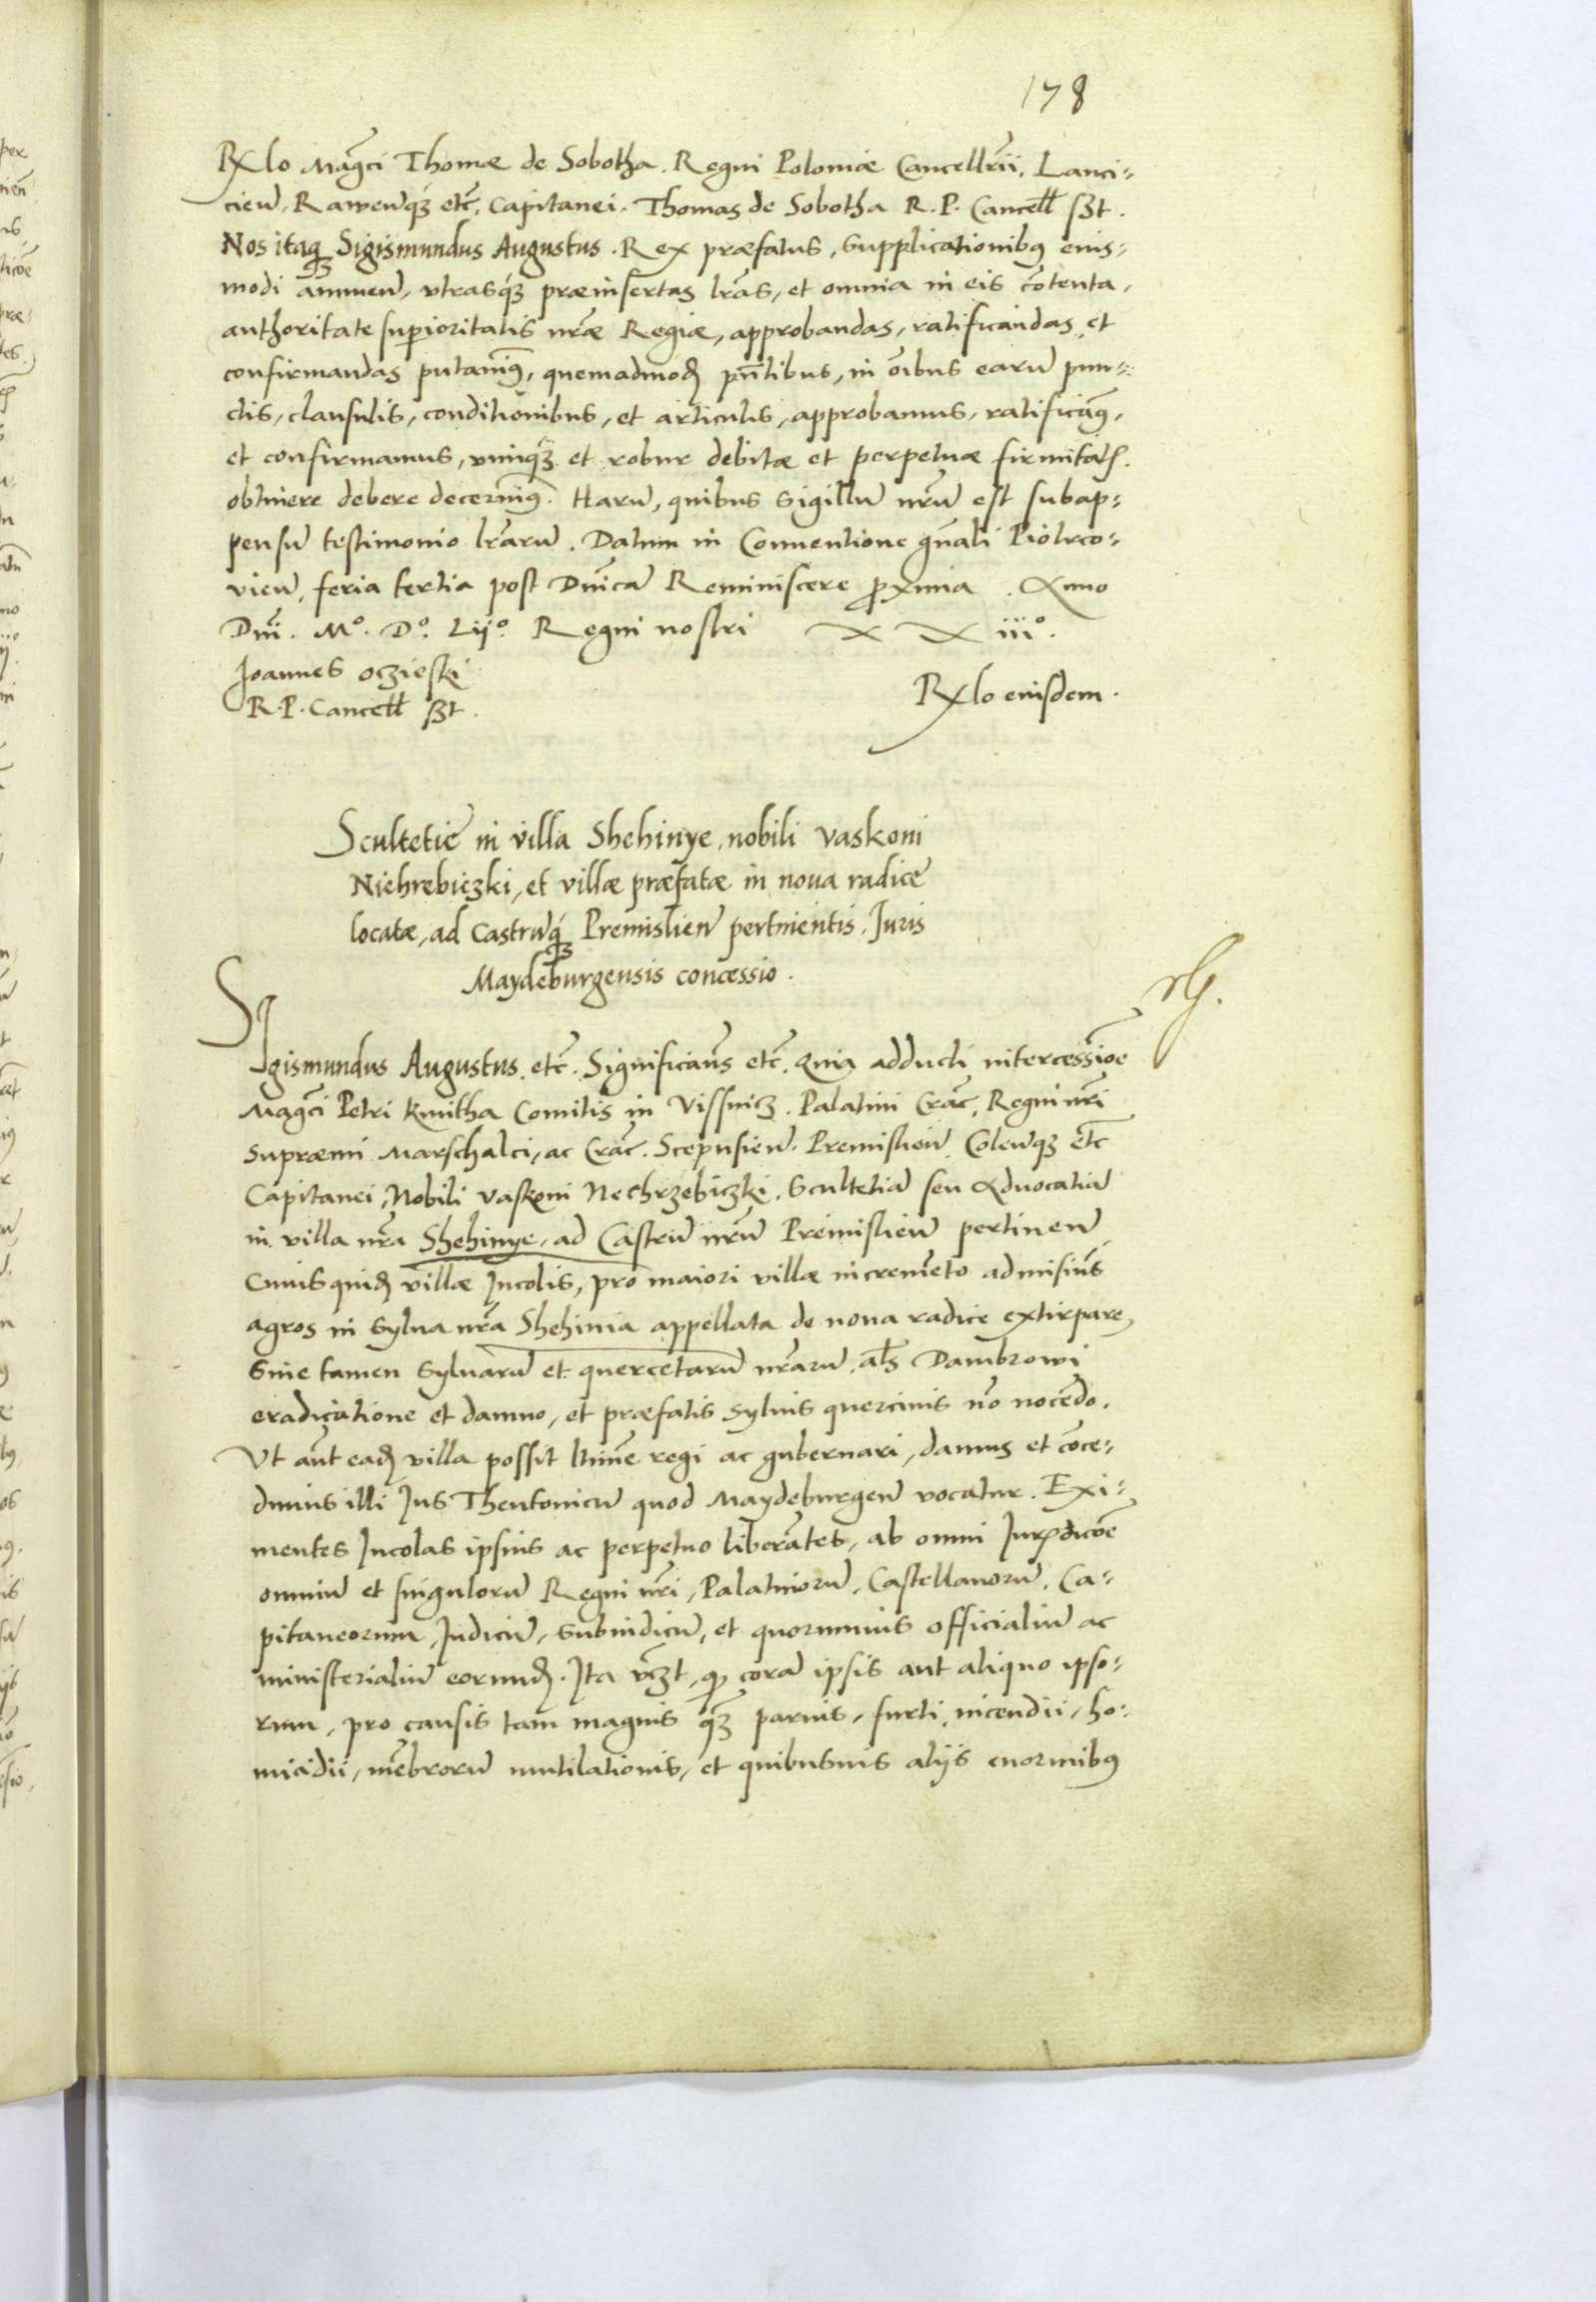 178
Rxlo Magci Thomæ de Sobotha. Regni Poloniæ Cancellrii, Lanci-
cien̄, Rawen̄q₃ etc̄, Capitanei. Thomas de Sobotha R. P. Cancell sszt.
Nos itaq₃ Sigismundus Augustus. Rex præfatus, supplicationib9 euis-
modi annuen̄, vtrasq₃ præinsertas lr̄as, et omnia in eis cōtenta,
authoritate superioritatis nr̄æ Regiæ, approbandas, ratificandas et
confirmandas putauim9, quemadmod₃ pn̄tibus, in oībus earū pun-
ctis, clausulis, conditionibus, et articulis, approbamus, ratificam9,
et confirmamus, vimq₃ et robur debitæ et perpetuæ firmitatꝭ.
obtinere debere decernim9. Harū, quibus sigillū nr̄ū est subap-
pensū testimonio lr̄arū. Datum in Conuentione gn̄ali Piotrco-
vien̄, feria tertia post Dn̄icā Reminiscere proxīmā. Anno
Dn̄i. Mº. Dº. Lijº. Regni nostri XXiiiº.
Joannes oczieski
R. P. Cancell sszt.
Rxlo eiusdem.
Scultetiæ in villa Shehinye, nobili vaskoni
Niehrebiczki, et villæ præfatæ in noua radice
locatæ, ad Castrūq₃ Premislien̄ pertinentis, Juris
Maydeburgensis concessio.
SIgismundus Augustus. etc̄. Significam9 etc̄. Quia adducti intercessiōe
Magci Petri kmitha Comitis in Vissnicz. Palatini Crac̄, Regni nr̄i
supræmi Marschalci, ac Crac̄. Scepusien̄. Premislien̄. Colen̄q₃ etc̄
Capitanei, Nobili vaskoni Nechrzebiczki. Scultetiā seu Aduocatiā
in villa nr̄a Shehinye, ad Castrū nr̄ū Premislien̄ pertinen̄
Cuius quid₃ villæ Jncolis, pro maiori villæ incremēto admisim9
agros in sylua nr̄a Shehinia appellata de noua radice extirpare,
sine tamen syluarū et quercetarū nr̄arū, als Dambrowi
eradicatione et damno, et præfatis syluis quercinis nō nocēdo.
Vt aut̄ ead₃ villa possit ltime regi ac gubernari, damus et cōce-
dimus illi Jus Theutonicū quod Maydeburgen̄ vocatur. Exi-
mentes Jncolas ipsius ac perpetuo liberātes, ab omni Jurꝭdicōe
omniū et singulorū Regni nr̄i, Palatinorū, Castellanorū, Ca-
pitaneorum, Judicū, subiudicū, et quorumuis officialiū ac
ministerialiū eorund₃. Jta vczt, qȝ corā ipsis aut aliquo ipso-
rum, pro causis tam magnis q₃ paruis, furti, incendii, ho-
micidii, mēbrorū mutilationis, et quibusuis alijs enormib9